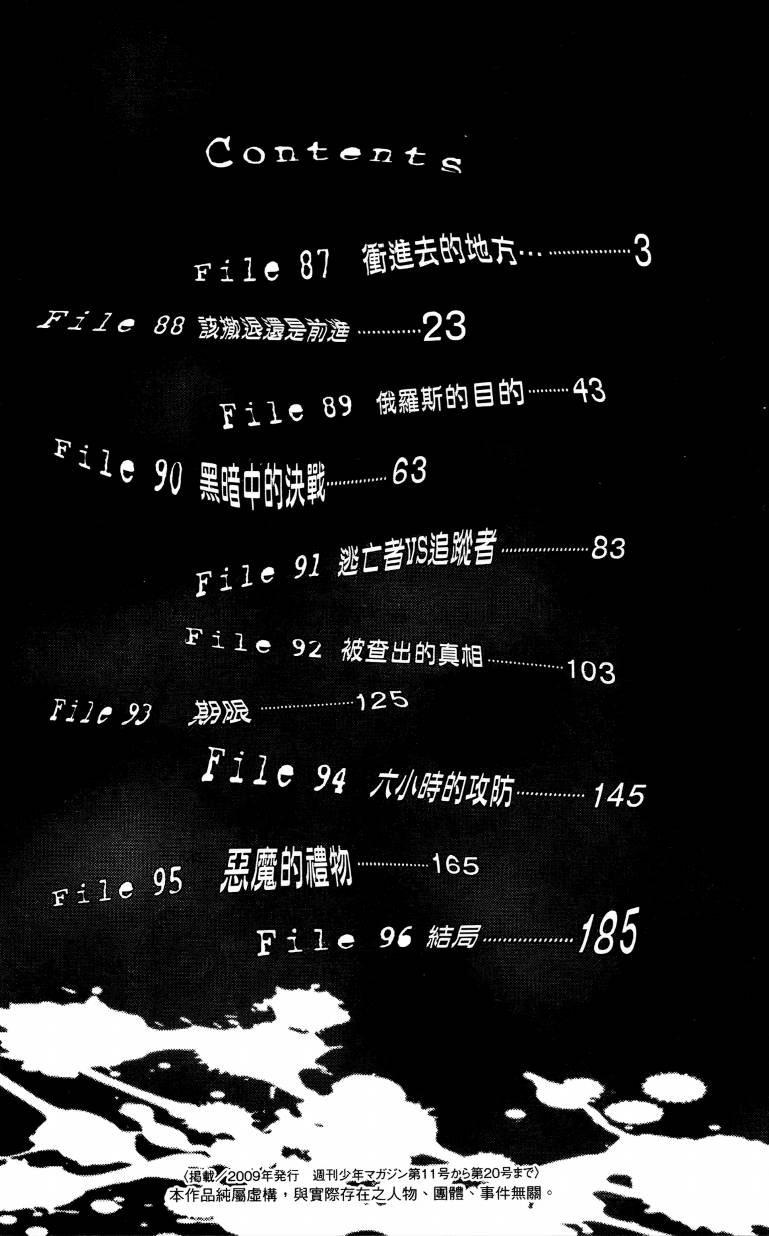 Contents
File 87 衝進去的地方…………………3
File 88 該撤退還是前進…………23
File 89 俄羅斯的目的………43
File 90 黑暗中的決戰…………63
File 91 逃亡者VS追蹤者………………83
File 92 被查出的真相……………103
File 93 期限………………125
File 94 六小時的攻防…………145
File 95 惡魔的禮物……………165
File 96 結局………………185
〈掲載／2009年発行　週刊少年マガジン第11号から第20号まで〉
本作品純屬虛構，與實際存在之人物、團體、事件無關。